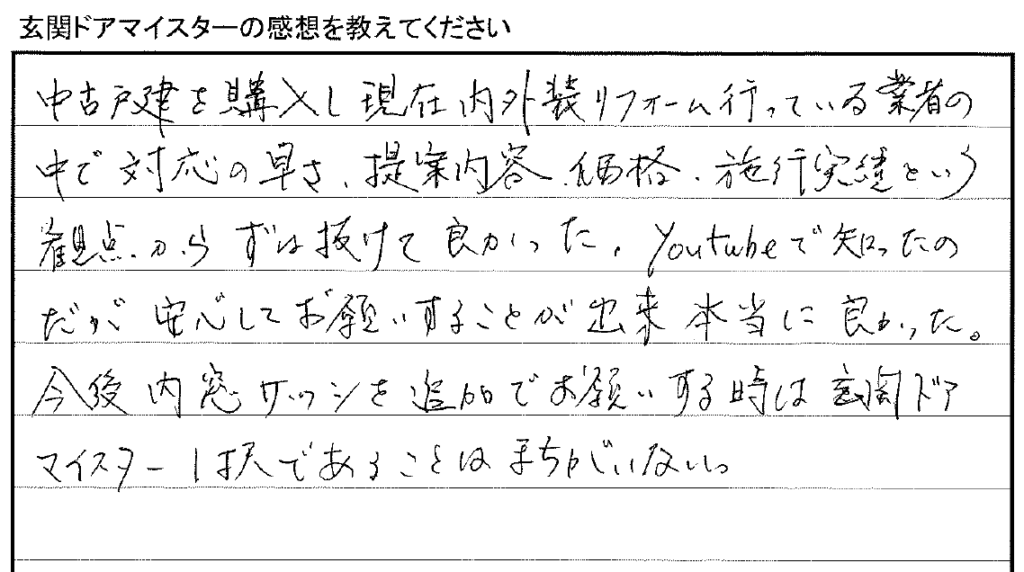 玄関ドアマイスターの感想を教えてください
中古戸建を購入し現在内外装リフォーム行っている業者の
中で対応の早さ、提案内容、価格、施行実績という
観点からずば抜けて良かった。Youtubeで知ったの
だが安心してお願いすることが出来本当に良かった。
今後内窓サッシを追加でお願いする時は玄関ドア
マイスター1択であることはまちがいない。